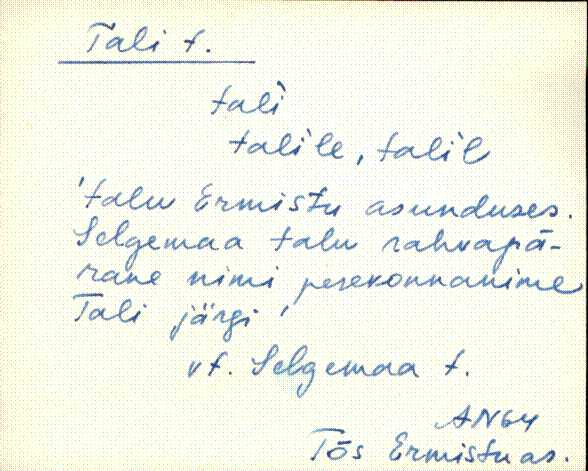 Tali t.
tali
talile, talil
'talu Ermistu asunduses.
Selgemaa talu rahvapä-
rane nimi perekonnanime
Tali järgi'
vt. Selgemaa t.
AN64
Tõs Ermistu as.